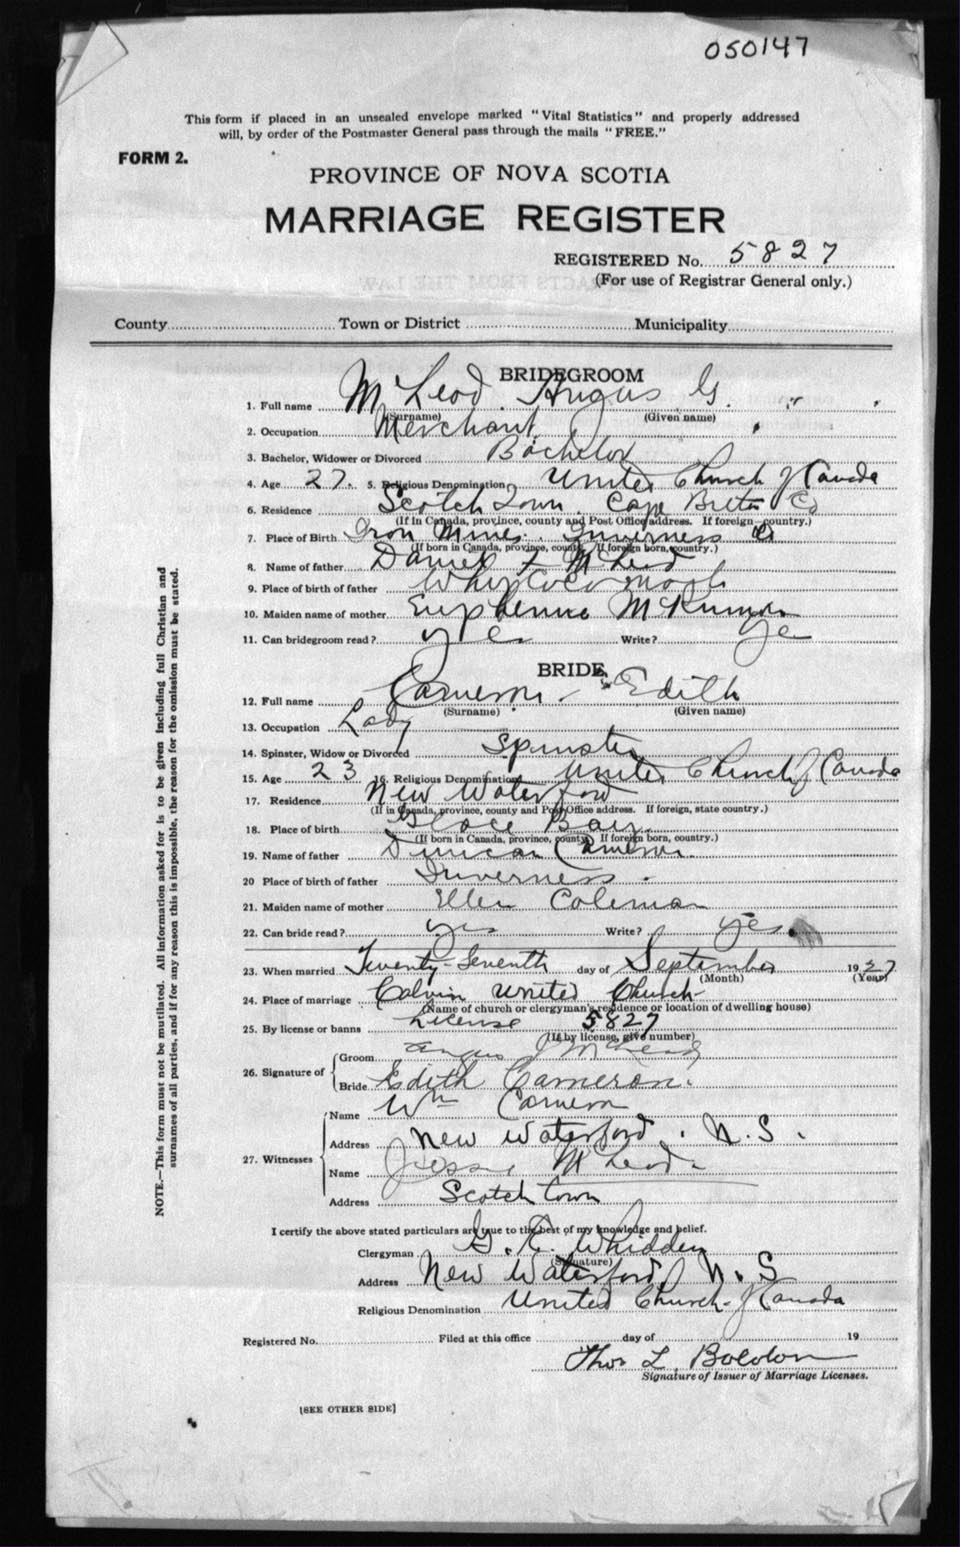 050147
This form if placed in an unsealed envelope marked "Vital Statistics" and properly addressed
will, by order of the Postmaster General pass through the mails "FREE."
FORM 2.
PROVINCE OF NOVA SCOTIA
MARRIAGE REGISTER
REGISTERED No. 5827
(For use of Registrar General only.)
County Town or District Municipality
BRIDEGROOM
1. Full name McLeod Angus G.
(Surname) (Given name)
2. Occupation Merchant
3. Bachelor, Widower or Divorced Bachelor
4. Age 27. 5. Religious Denomination United Church of Canada
6. Residence Scotch Town Cape Breton Co
(If in Canada, province, county and Post Office address. If foreign country.)
7. Place of Birth Iron Mines. Inverness Co
(If born in Canada, province, county. If foreign born, country.)
8. Name of father Daniel McLeod
9. Place of birth of father Whycocomagh
10. Maiden name of mother Euphemia McKinnon
11. Can bridegroom read? yes Write? yes
BRIDE
12. Full name Cameron - Edith
(Surname) (Given name)
13. Occupation Lady
14. Spinster, Widow or Divorced Spinster
15. Age 23 16. Religious Denomination United Church of Canada
17. Residence New Waterford
(If in Canada, province, county and Post Office address. If foreign, state country.)
18. Place of birth Glace Bay.
(If born in Canada, province, county. If foreign born, country.)
19. Name of father Duncan Cameron.
20 Place of birth of father Inverness.
21. Maiden name of mother Ellen Coleman
22. Can bride read? yes Write? yes.
23. When married Twenty-Seventh day of September 1927
(Month) (Year)
24. Place of marriage Calvin United Church
(Name of church or clergyman's residence or location of dwelling house)
25. By license or banns License 5827
(If by license, give number)
26. Signature of Groom Angus McLeod
Bride Edith Cameron.
27. Witnesses Name Wm Cameron
Address New Waterford, N.S.
Name Jessie McLeod
Address Scotch town
I certify the above stated particulars are true to the best of my knowledge and belief.
Clergyman Whidden
(Signature)
Address New Waterford, N.S
Religious Denomination United Church of Canada
Registered No. Filed at this office day of 19
Thos L.
Signature of Issuer of Marriage Licenses.
[SEE OTHER SIDE]
NOTE.—This form must not be mutilated. All information asked for is to be given including full Christian and
surnames of all parties, and if for any reason this is impossible, the reason for the omission must be stated.